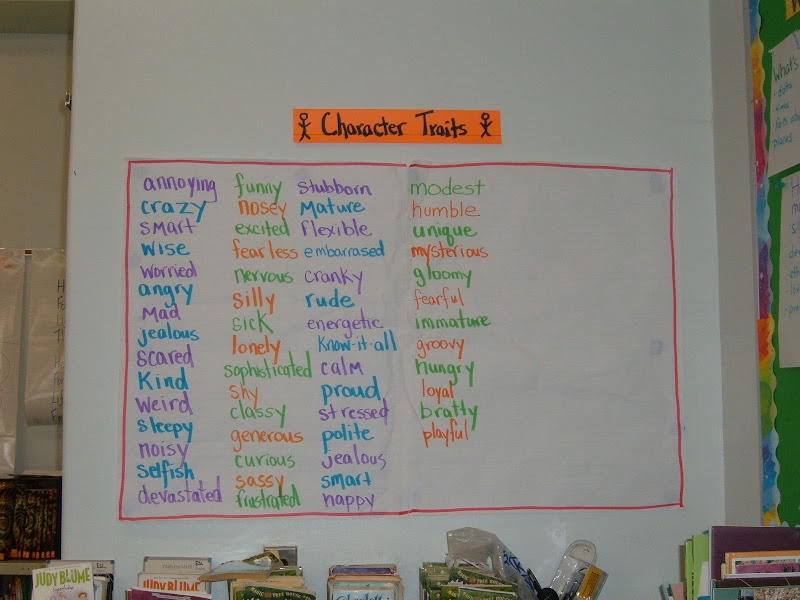 Character Traits
annoying
crazy
smart
wise
worried
angry
Mad
jealous
scared
Kind
Weird
sleepy
noisy
selfish
devastated
funny
nosey
excited
fearless
nervous
silly
sick
lonely
sophisticated
shy
classy
generous
curious
sassy
frustrated
Stubborn
Mature
flexible
embarrased
cranky
rude
energetic
Know-it-all
calm
proud
stressed
polite
jealous
smart
happy
modest
humble
unique
mysterious
gloomy
fearful
immature
groovy
hungry
loyal
bratty
playful
What's
JUDY BLUME
JUDY BLUME